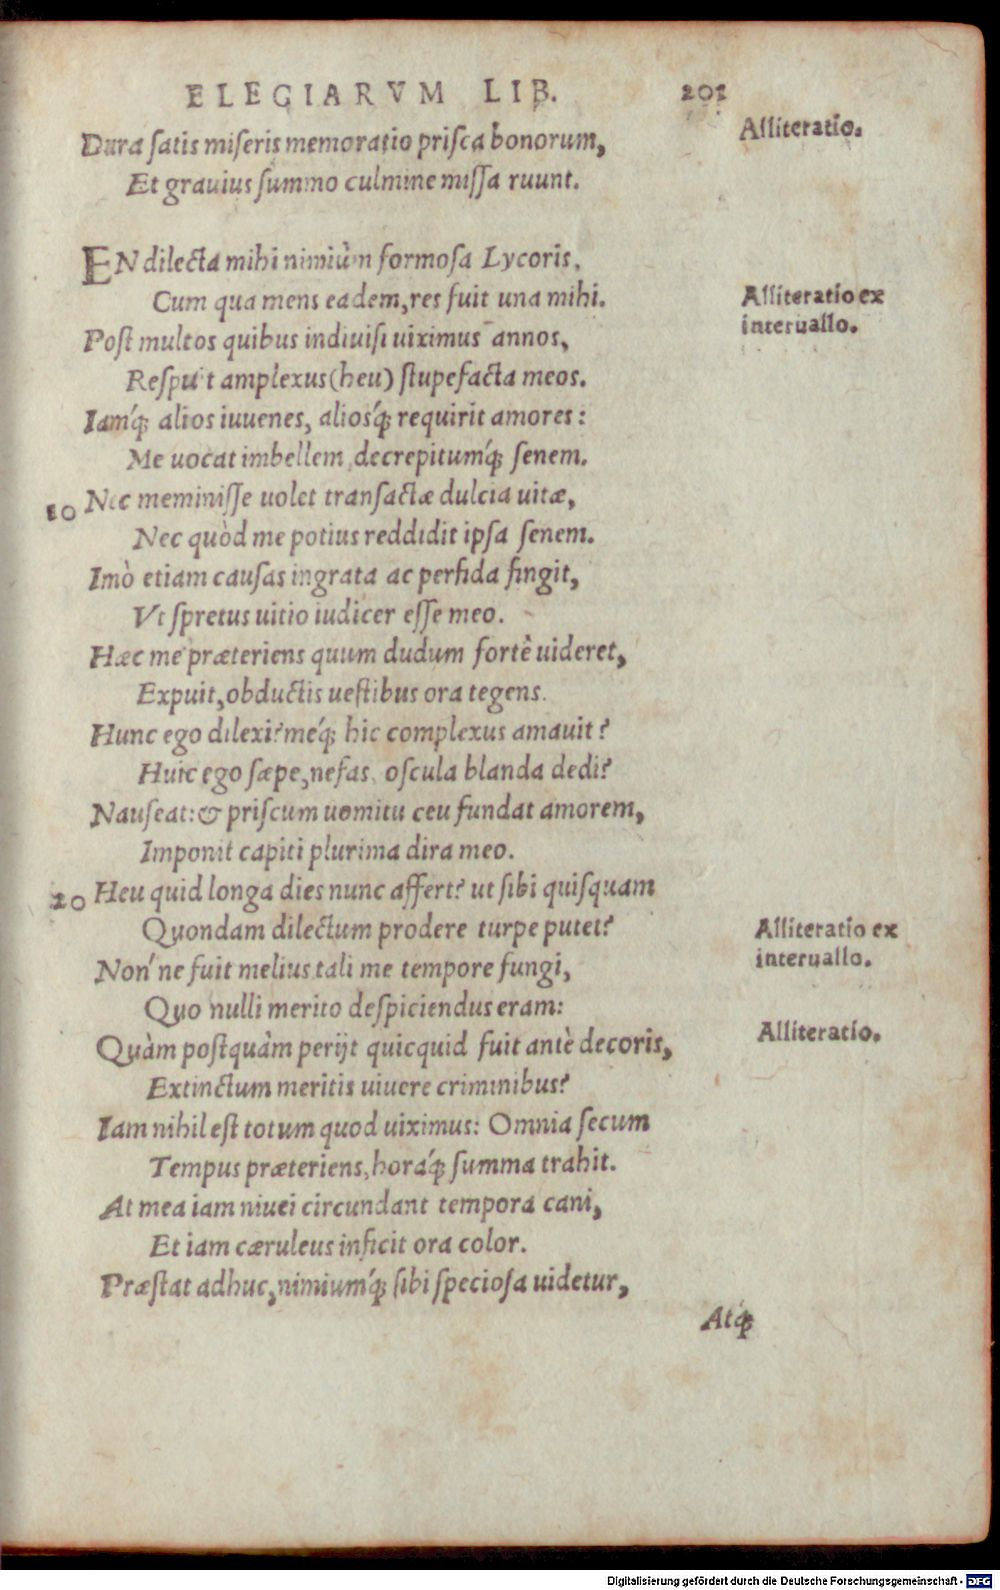 ELEGIARVM LIB. 201
Dura satis miseris memoratio prisca bonorum,
Alliteratio.
Et grauius summo culmine missa ruunt.
EN dilecta mihi nimiùm formosa Lycoris,
Cum qua mens eadem, res fuit una mihi.
Alliteratio ex
interuallo.
Post multos quibus indiuisi uiximus annos,
Respuit amplexus (heu) stupefacta meos.
Iamq́; alios iuuenes, aliosq́; requirit amores:
Me uocat imbellem decrepitumq́; senem.
10 Nec meminisse uolet transactæ dulcia uitæ,
Nec quòd me potius reddidit ipsa senem.
Imò etiam causas ingrata ac perfida fingit,
Vt spretus uitio iudicer esse meo.
Hæc me præteriens quum dudum fortè uideret,
Expuit, obductis uestibus ora tegens.
Hunc ego dilexi? meq́; hic complexus amauit?
Huic ego sæpe, nefas, oscula blanda dedi?
Nauseat: & priscum uomitu ceu fundat amorem,
Imponit capiti plurima dira meo.
20 Heu quid longa dies nunc affert? ut sibi quisquam
Quondam dilectum prodere turpe putet?
Alliteratio ex
interuallo.
Non'ne fuit melius tali me tempore fungi,
Quo nulli merito despiciendus eram:
Quàm postquàm perijt quicquid fuit antè decoris,
Alliteratio.
Extinctum meritis uiuere criminibus?
Iam nihil est totum quod uiximus: Omnia secum
Tempus præteriens, horaq́; summa trahit.
At mea iam niuei circundant tempora cani,
Et iam cæruleus inficit ora color.
Præstat adhuc, nimiumq́; sibi speciosa uidetur,
Atq́;
Digitalisierung gefördert durch die Deutsche Forschungsgemeinschaft - DFG